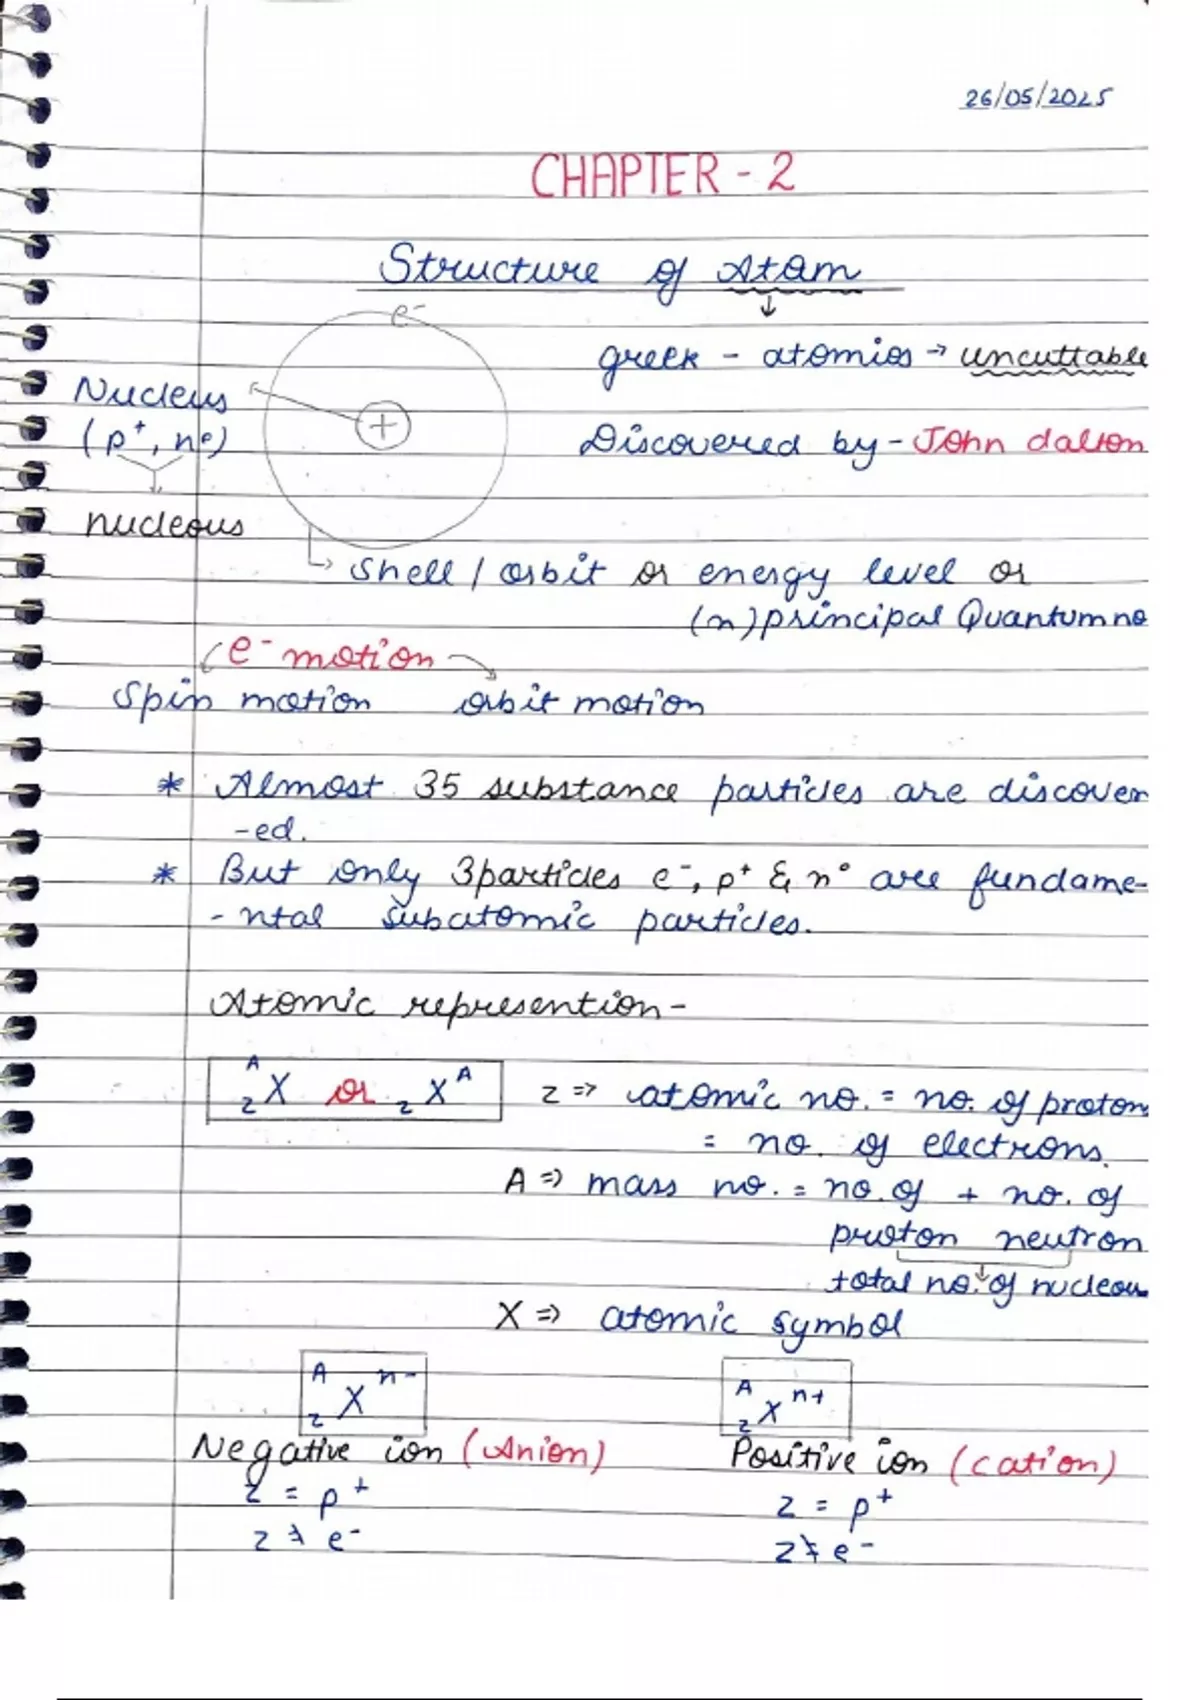 26/05/2025
CHAPTER - 2
Structure of Atom
e⁻
greek - atomios → uncuttable
Nucleus
(p⁺, n⁰)
+
Discovered by - John dalton
nucleous
shell / orbit or energy level or
(n) principal Quantum no
e⁻ motion
Spin motion orbit motion
* Almost 35 substance particles are discover
-ed.
* But only 3 particles e⁻, p⁺ & n° are fundame-
-ntal subatomic particles.
Atomic represention -
ᴬ₂X or ₂Xᴬ z ⇒ atomic no. = no. of proton
= no. of electrons.
A ⇒ mass no. = no. of + no. of
proton neutron
total no. of nucleou
X ⇒ atomic symbol
ᴬ₂Xⁿ⁻ ᴬ₂Xⁿ⁺
Negative ion (Anion) Positive ion (cation)
z = p⁺ z = p⁺
z ≠ e⁻ z ≠ e⁻